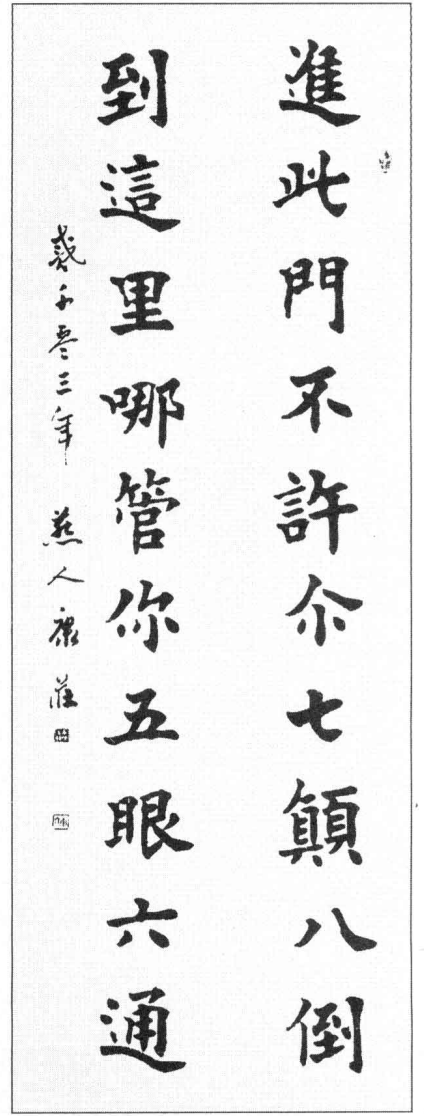 進此門不許尒七顛八倒
到這里哪管你五眼六通
貳千零三年 燕人康莊